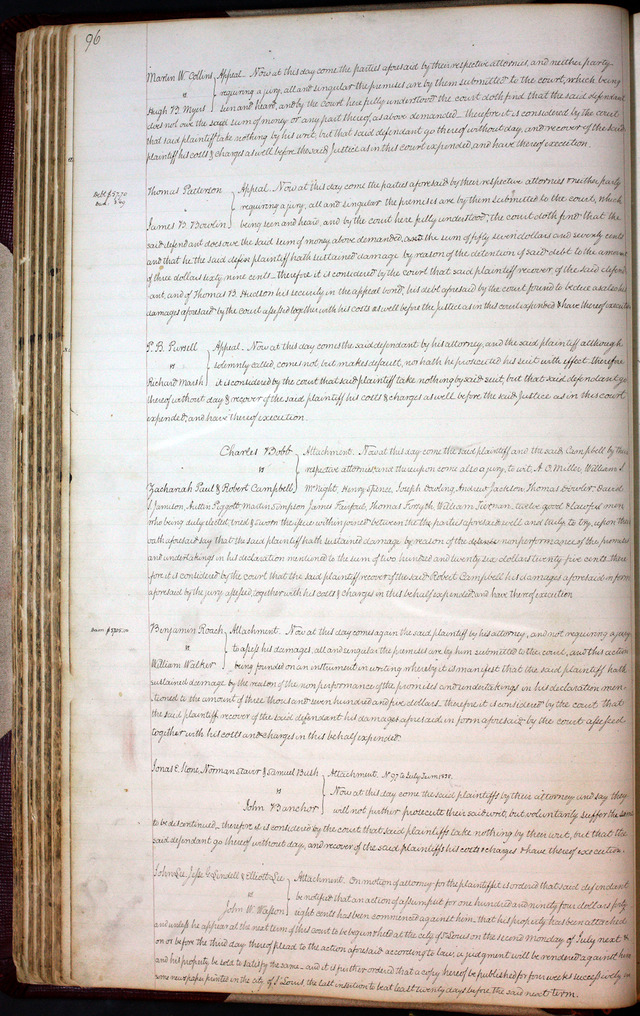 96
Martin W Collins } Appeal. Now at this day come the parties aforesaid by their respective attornies, and neither party
vs requiring a jury, all and singular the premises are by them submitted to the court, which being
Hugh B Myers seen and heard, and by the Court here fully understood the court doth find that the said defendant
does not owe the said sum of money or any part thereof as above demanded therefore it is considered by the court
that said plaintiff take nothing by his writ, but that said defendant go thereof without day, and recover of the said
plaintiff his costs & charges as well before the said Justice as in this court expended, and have thereof execution.
Debt $57.70
Dam. 3.69
Thomas Patterson } Appeal. Now at this day come the parties aforesaid by their respective attornies & neither party
requiring a jury, all and singular the premises are by them submitted to the court, which
James B. Bowlin being seen and heard, and by the court here fully understood, the court doth find that the
said defendant does owe the said sum of money above demanded, the sum of fifty seven dollars and seventy cents
and that he the said plaintiff hath sustained damage by reason of the detention of said debt to the amount
of three dollars sixty nine cents—therefore it is considered by the court that said plaintiff recover of the said defend
ant, and of Thomas B. Hudson his security in the appeal bond, his debt aforesaid by the court found to be due as also his
damages aforesaid by the court assessed together with his costs as well before the justice as in this court expended & have thereof execution
P. B. Pursell } Appeal. Now at this day comes the said defendant by his attorney, and the said plaintiff although
vs solemnly called, comes not but makes default, nor hath he prosecuted his suit with effect. therefore
Richard Marsh it is considered by the court that said plaintiff take nothing by said suit, but that said defendant go
thereof without day & recover of the said plaintiff his costs & charges as well before the said Justice as in this court
expended, and have thereof execution.
Charles Bobb } Attachment. Now at this day come the said plaintiff and the said Campbell by their
vs respective attornies and thereupon come also a jury, to wit, A. O. Miller, William S.
Zachariah Paul & Robert Campbell McKnight, Henry Spence, Joseph Dowling Andrew Jackson Thomas Dowler, David
S Jamison Austin Piggott, Martin Simpson James Fairfare, Thomas Forsyth William Tiernan, twelve good & lawful men
who being duly elected, tried & sworn the issue within joined between the parties aforesaid well and truly to try, upon their
oath aforesaid say that the said plaintiff hath sustained damage by reason of the nonperformances of the promises
and undertakings in his declaration mentioned to the sum of two hundred and twenty six dollars twenty five cents. there
fore it is considered by the court that the said plaintiff recover of the said Robert Campbell his damages aforesaid in form
aforesaid by the jury assessed, together with his costs & charges in this behalf expended and have thereof execution
Dam $3705.00
Benjamin Roach } Attachment. Now at this day comes again the said plaintiff by his attorney, and not requiring a jury
vs to assess his damages, all and singular the premises are by him submitted to the court, and this action
William Walker being founded on an instrument in writing whereby it is manifest that the said plaintiff hath
sustained damage by the reason of the non performance of the promises and undertakings in his declaration men
tioned to the amount of three thousand seven hundred and five dollars. therefore it is considered by the court that
the said plaintiff recover of the said defendant his damages aforesaid in form aforesaid by the court assessed
together with his costs and charges in this behalf expended.
Jonas E. Stone, Norman Starr & Samuel Bush } Attachment. N. 97 to July Term 1838.
vs Now at this day come the said plaintiffs by their attorney and say they
John Banchor will not further prosecute their said writ, but voluntarily suffer the same
to be discontinued—therefore it is considered by the court that said plaintiffs take nothing by their writ, but that the
said defendant go thereof without day, and recover of the said plaintiffs his costs & charges & have thereof execution.
John Lee, Jesse G. Lindell & Elliott Lee } Attachment. On motion of attorney for the plaintiffs it is ordered that said defendant
vs be notified that an action of assumpsit for one hundred and ninety four dollars forty
John W. Wasson eight cents has been commenced against him, that his property has been attached
and unless he appear at the next term of this court to be begun & held at the city of St Louis on the second Monday of July next &
on or before the third day thereof plead to the action aforesaid according to law, a judgment will be rendered against him
and his property be sold to satisfy the same—and it is further ordered that a copy hereof be published for four weeks successively in
some newspaper printed in the city of St Louis, the last insertion to be at least twenty days before the said next term.